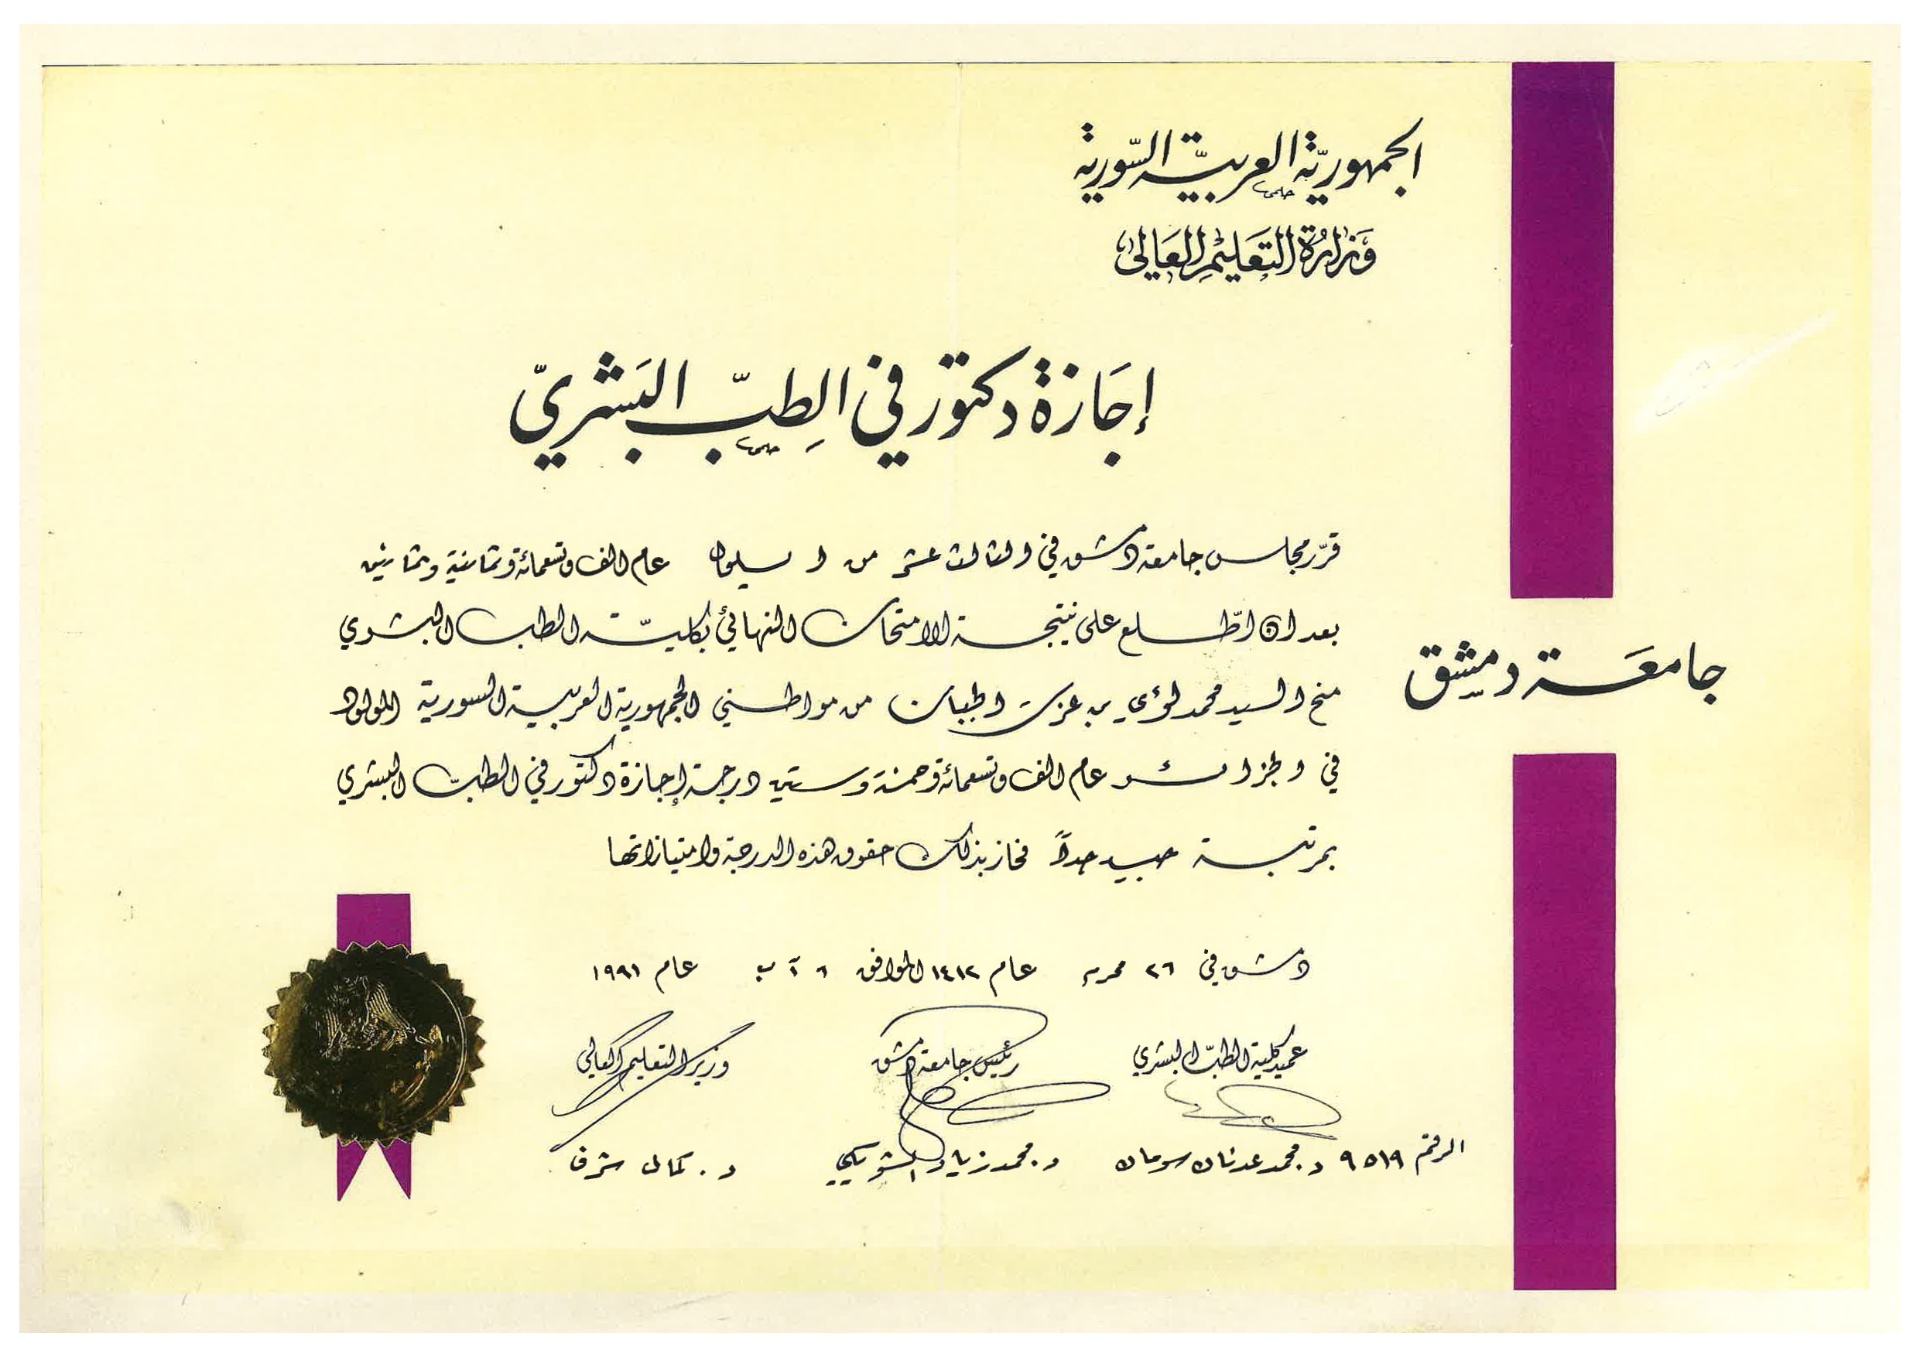 الجمهوريّة العربيّة السّورية
وَزارَة التعَليْم العَالي
إجَازة دكتور في الطِبّ البَشريّ
قرّر مجلس جامعة دمشق في الثالث عشر من ايلول عام الف وتسعمائة وثمانية وثمانين
بعد ان اطّلع على نتيجة الامتحان النهائي بكليّة الطب البشري
منح السيد محمد لؤي بن عزت الطبان من مواطني الجمهورية العربية السورية المولود
في الجزائر عام الف وتسعمائة وخمسة وستين درجة إجازة دكتور في الطبّ البشري
بمرتبة جيد جداً فحاز بذلك حقوق هذه الدرجة وامتيازاتها
جامعَة دمشق
دمشق في ٢٦ محرم عام ١٤١٢ الموافق ٦ آب عام ١٩٩١
عميد كلية الطبّ البشري رئيس جامعة دمشق وزير التعليم العالي
الرقم ٩٥١٩ د. محمد عدنان سومان د. محمد زياد الشويكي د. كمال شرف